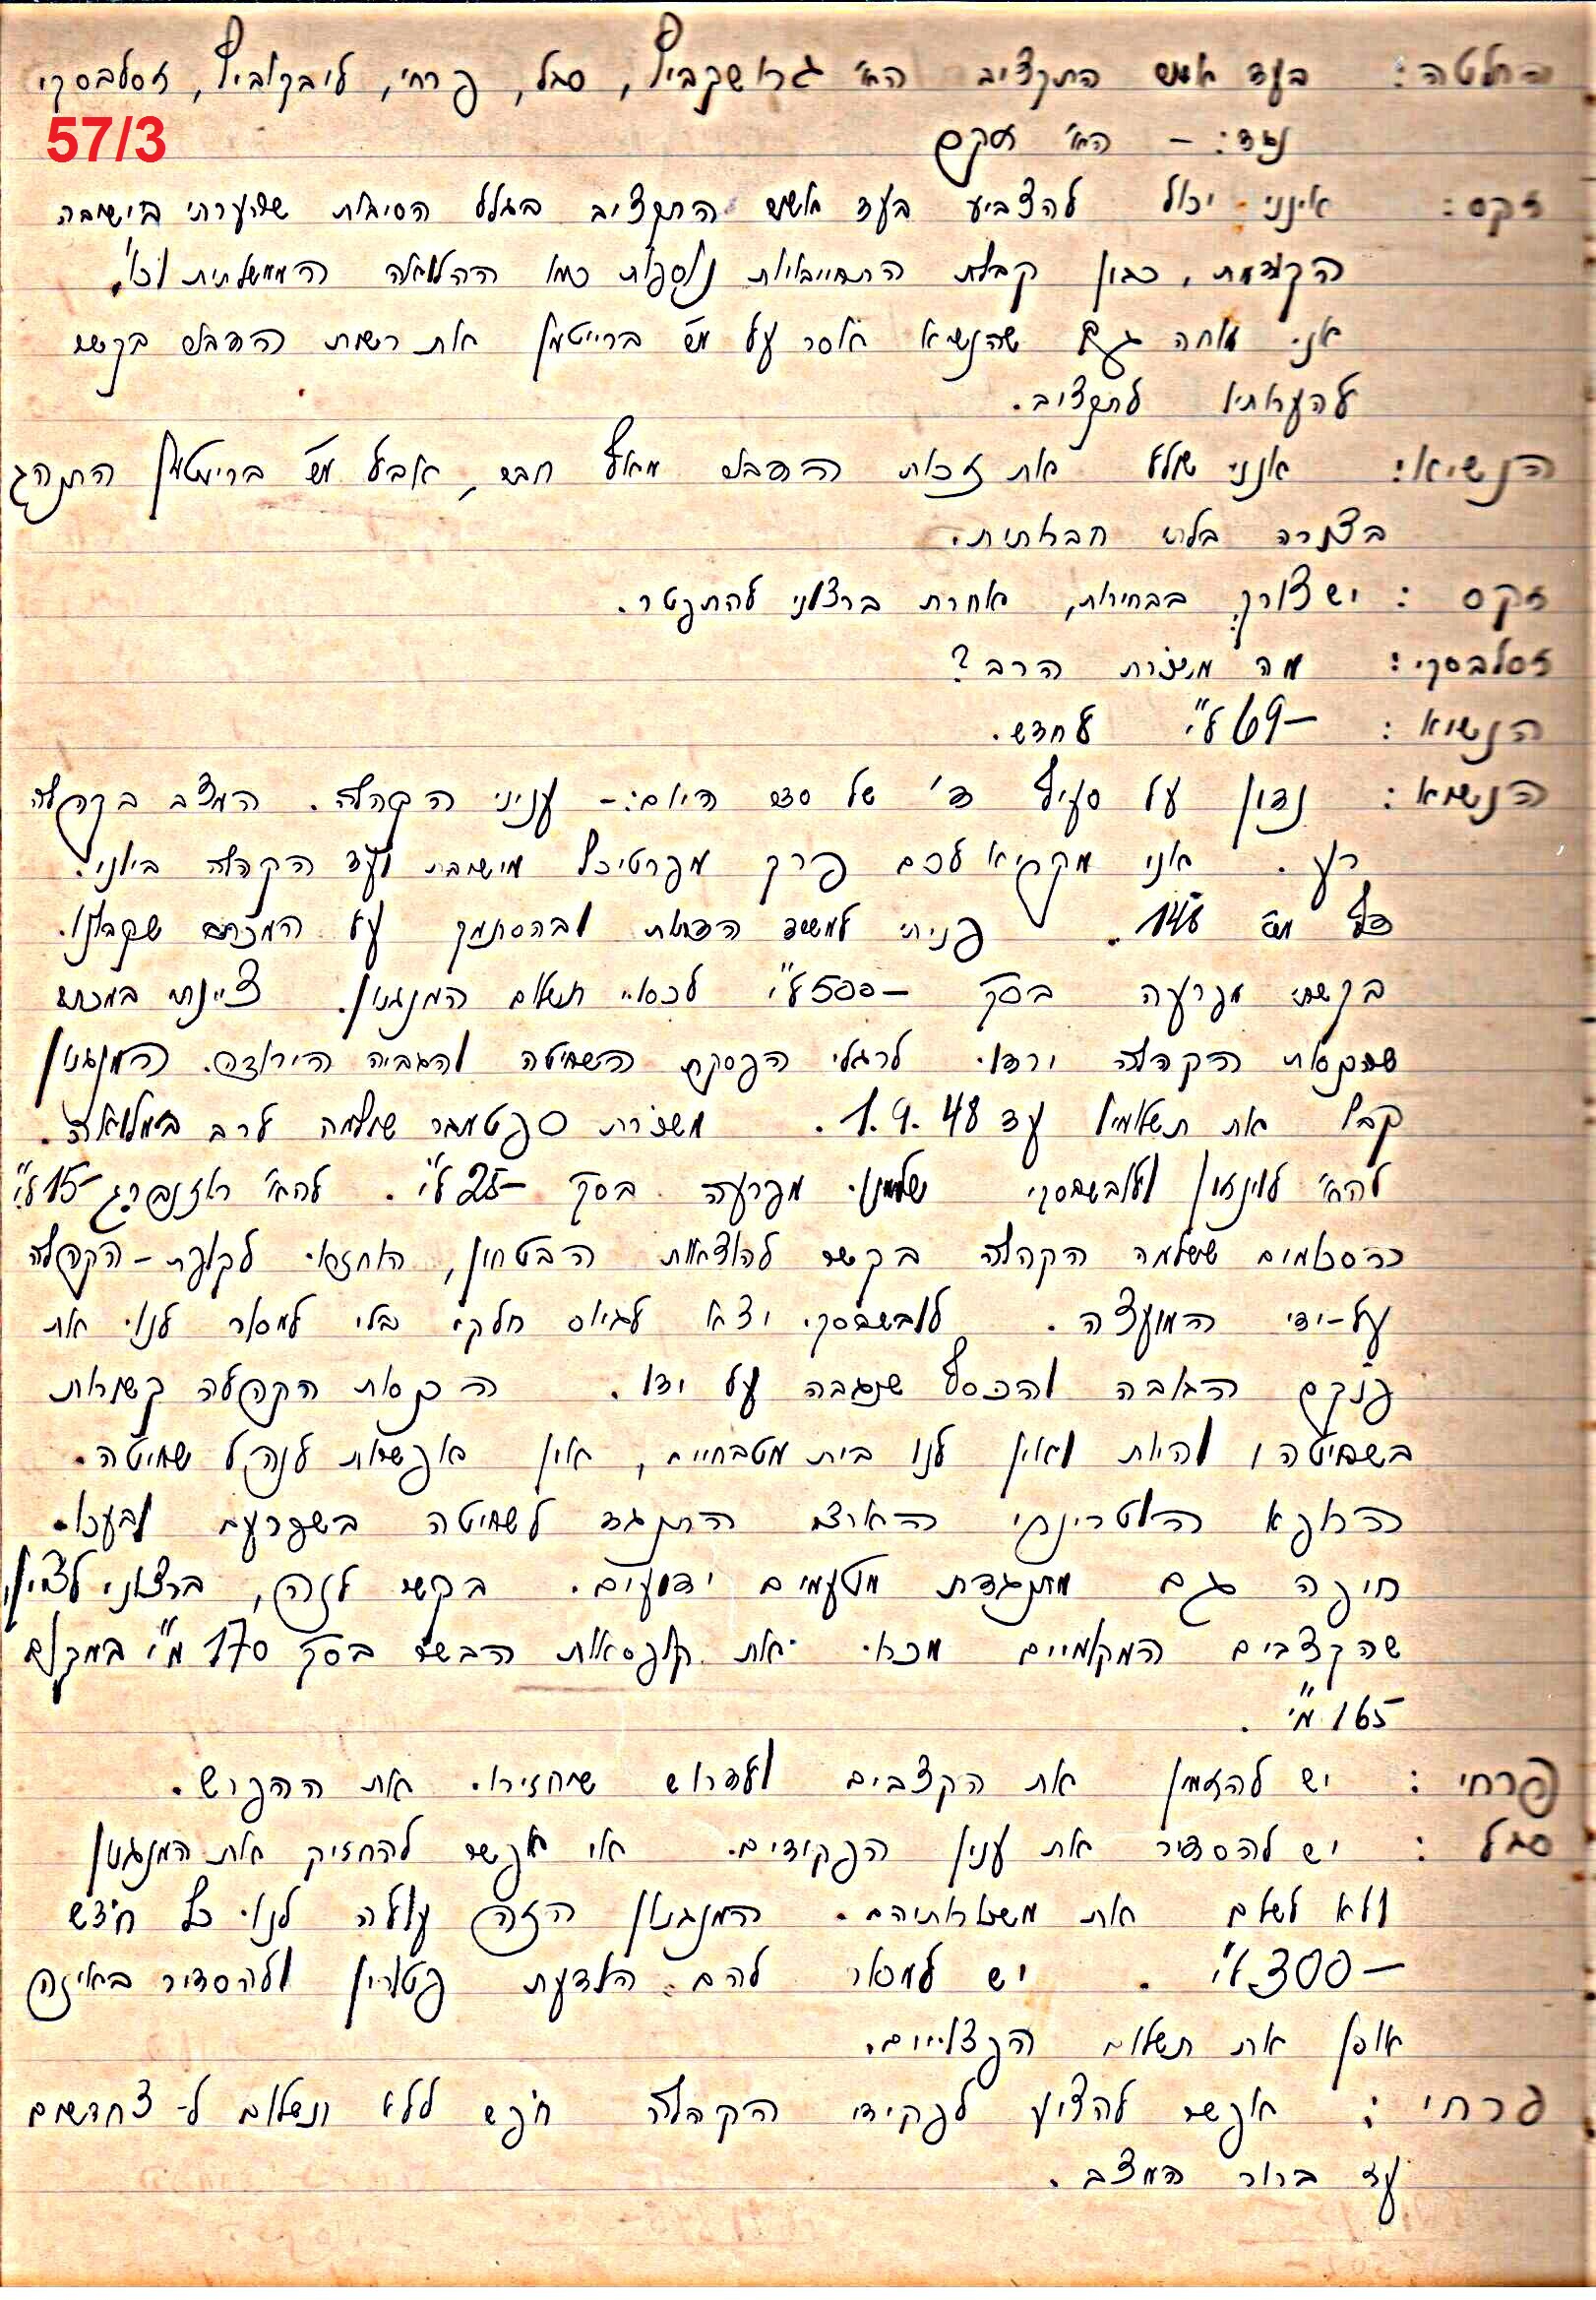 החלטה: בעד אשוש התקציב הא' גרושקביץ, סגל, פרחי, ליבקוביץ, זסלבסקי
57/3
נגד: – הא' זקס
זקס: אינני יכול להצביע בעד אשוש התקציב בגלל הסיגות שהערתי בישיבה
הקודמת, כגון קבלת התחייבויות נוספות כמו ההלואה הממשלתית וכו'.
אני מוחה גם שהנשיא אסר על מש ברייטמן את רשות הדבור בקשר
להערותיו לתקציב.
הנשיא: אינני שולל את זכות הדבור מאף חבר, אבל מש ברייטמן התנהג
בצורה בלתי חברותית.
זקס: יש צורך בבחירות, אחרת ברצוני להתפטר.
זסלבסקי: מה משכורת הרב?
הנשיא: 69– ל"י לחדש.
הנשיא: נדון על סעיף ד' של סדר היום:– עניני הקהלה. המצב בקהלה
רע. אני מקריא לכם פרק מפרטיכל מישיבת ועד הקהלה ביוני.
דף מס 148. פניתי למשרד הדתות ובהסתמך על המכתב שקבלנו.
בקשתי מפרעה בסך 500– ל"י לכסוי תשלום המנגנון. ציינתי במכתב
שהכנסות הקהלה ירדו לרגלי הפסקת השחיטה והגביה הירודה. המנגנון
קבל את תשלומיו עד 1.9.48. משכורת ספטמבר שולמה לרב במלואה.
להא' לוינזון ולובשבסקי שלמנו מפרעה בסך 25– ל"י. להא' רוזנברג 15– ל"י
הסכומים ששלמה הקהלה בקשר להוצאות הבטחון, הוחזרו לקופת-הקהלה
על-ידי המועצה. לובשבסקי יצא לגיוס חלקי בלי למסור לנו את
פנקס הגובה והכסף שנגבה על ידו. הכנסות הקהלה קשורות
בשחיטה והיות ואין לנו בית מטבחיים, אין אפשרות לנהל שחיטה.
הרופא הוטרינרי הארצי התנגד לשחיטה בשפרעם ובעכו.
חיפה גם מתנגדת מטעמים ידועים. בקשר לזה, ברצוני לציין,
שהקצבים המקומיים מכרו את קופסאות הבשר בסך 170 מ"י במקום
165 מ"י.
פרחי: יש להזמין את הקצבים ולדרוש שיחזירו את ההפרש.
סגל: יש להסדיר את ענין הפקידים. אי אפשר להחזיק את המנגנון
ולא לשלם את משכורותיהם. המנגנון הזה עולה לנו כל חודש
300– ל"י. יש למסור להם הודעת פטורין ולהסדיר באיזה
אופן את תשלום הפצויים.
פרחי: אפשר להציע לפקידי הקהלה חופש ללא תשלום ל-3 חדשים
עד ברור המצב.